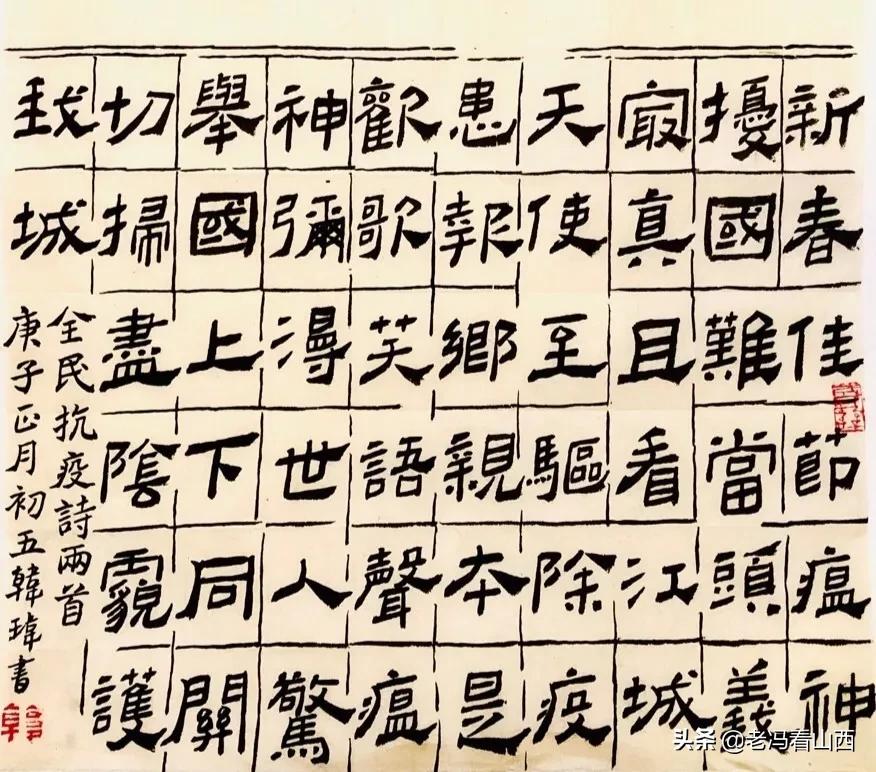 新春佳節瘟神
擾國難當頭義
最真且看江城
天使至驅除疫
患報鄉親本是
歡歌笑語聲瘟
神彌漫世人驚
舉國上下同關
切掃盡陰霾護
我城
全民抗疫詩兩首
庚子正月初五韓瑋書
头条 @老冯看山西